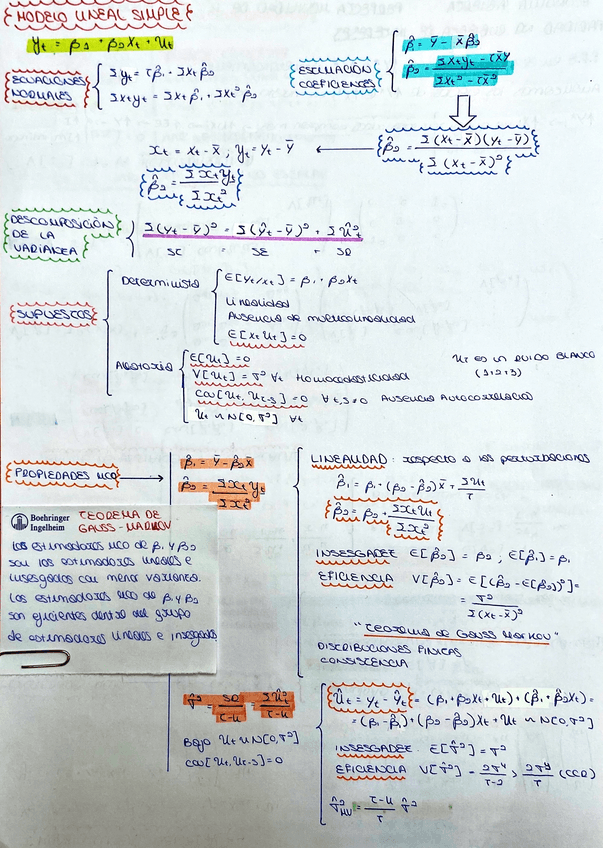 MODELO LINEAL SIMPLE
yt = β1 + β2Xt + Ut
ECUACIONES NORMALES
Σyt = Tβ̂1 + ΣXt β̂2
ΣXtyt = ΣXt β̂1 + ΣXt² β̂2
ESTIMACIÓN COEFICIENTES
β̂1 = Ȳ - X̄β̂2
β̂2 = ΣXtYt - TX̄Ȳ / ΣXt² - TX̄²
β̂2 = Σ(Xt - X̄)(Yt - Ȳ) / Σ(Xt - X̄)²
xt = Xt - X̄ ; yt = Yt - Ȳ
β̂2 = Σxtyt / Σxt²
DESCOMPOSICIÓN DE LA VARIANZA
Σ(Yt - Ȳ)² = Σ(Ŷt - Ȳ)² + ΣÛt²
SC = SE + SR
SUPUESTOS
Determinista
E[Yt/Xt] = β1 + β2Xt
Linealidad
Ausencia de multicolinealidad
E[XtUt] = 0
Aleatorio
E[Ut] = 0
V[Ut] = σ² ∀t Homocedasticidad
Cov[Ut, Ut-s] = 0 ∀t,s≠0 Ausencia Autocorrelación
Ut ~ N[0, σ²] ∀t
Ut es un ruido blanco
(1+2+3)
PROPIEDADES MCO
β̂1 = Ȳ - β̂2X̄
β̂2 = Σxtyt / Σxt²
LINEALIDAD: respecto a las perturbaciones
β̂1 = β1 + (β2 - β̂2)X̄ + ΣUt / T
β̂2 = β2 + ΣxtUt / Σxt²
INSESGADEZ E[β̂2] = β2 ; E[β̂1] = β1
EFICIENCIA V[β̂2] = E[(β̂2 - E[β̂2])²] =
= σ² / Σ(Xt - X̄)²
"TEOREMA DE GAUSS MARKOV"
DISTRIBUCIONES FINITAS
CONSISTENCIA
Boehringer
Ingelheim
TEOREMA DE
GAUSS-MARKOV
Los estimadores MCO de β1 y β2
son los estimadores lineales e
insesgados con menor varianza.
Los estimadores MCO de β1 y β2
son eficientes dentro del grupo
de estimadores lineales e insesgados
σ̂² = SR / T-K = ΣÛt² / T-K
Bajo Ut ~ N[0, σ²]
Cov[Ut, Ut-s] = 0
Ût = Yt - Ŷt = (β1 + β2Xt + Ut) + (β̂1 + β̂2Xt) =
= (β1 - β̂1) + (β2 - β̂2)Xt + Ut ~ N[0, σ²]
INSESGADEZ. E[σ̂²] = σ²
EFICIENCIA V[σ̂²] = 2σ⁴ / T-2 > 2σ⁴ / T (CCR)
σ̂²MV = T-K / T σ̂²